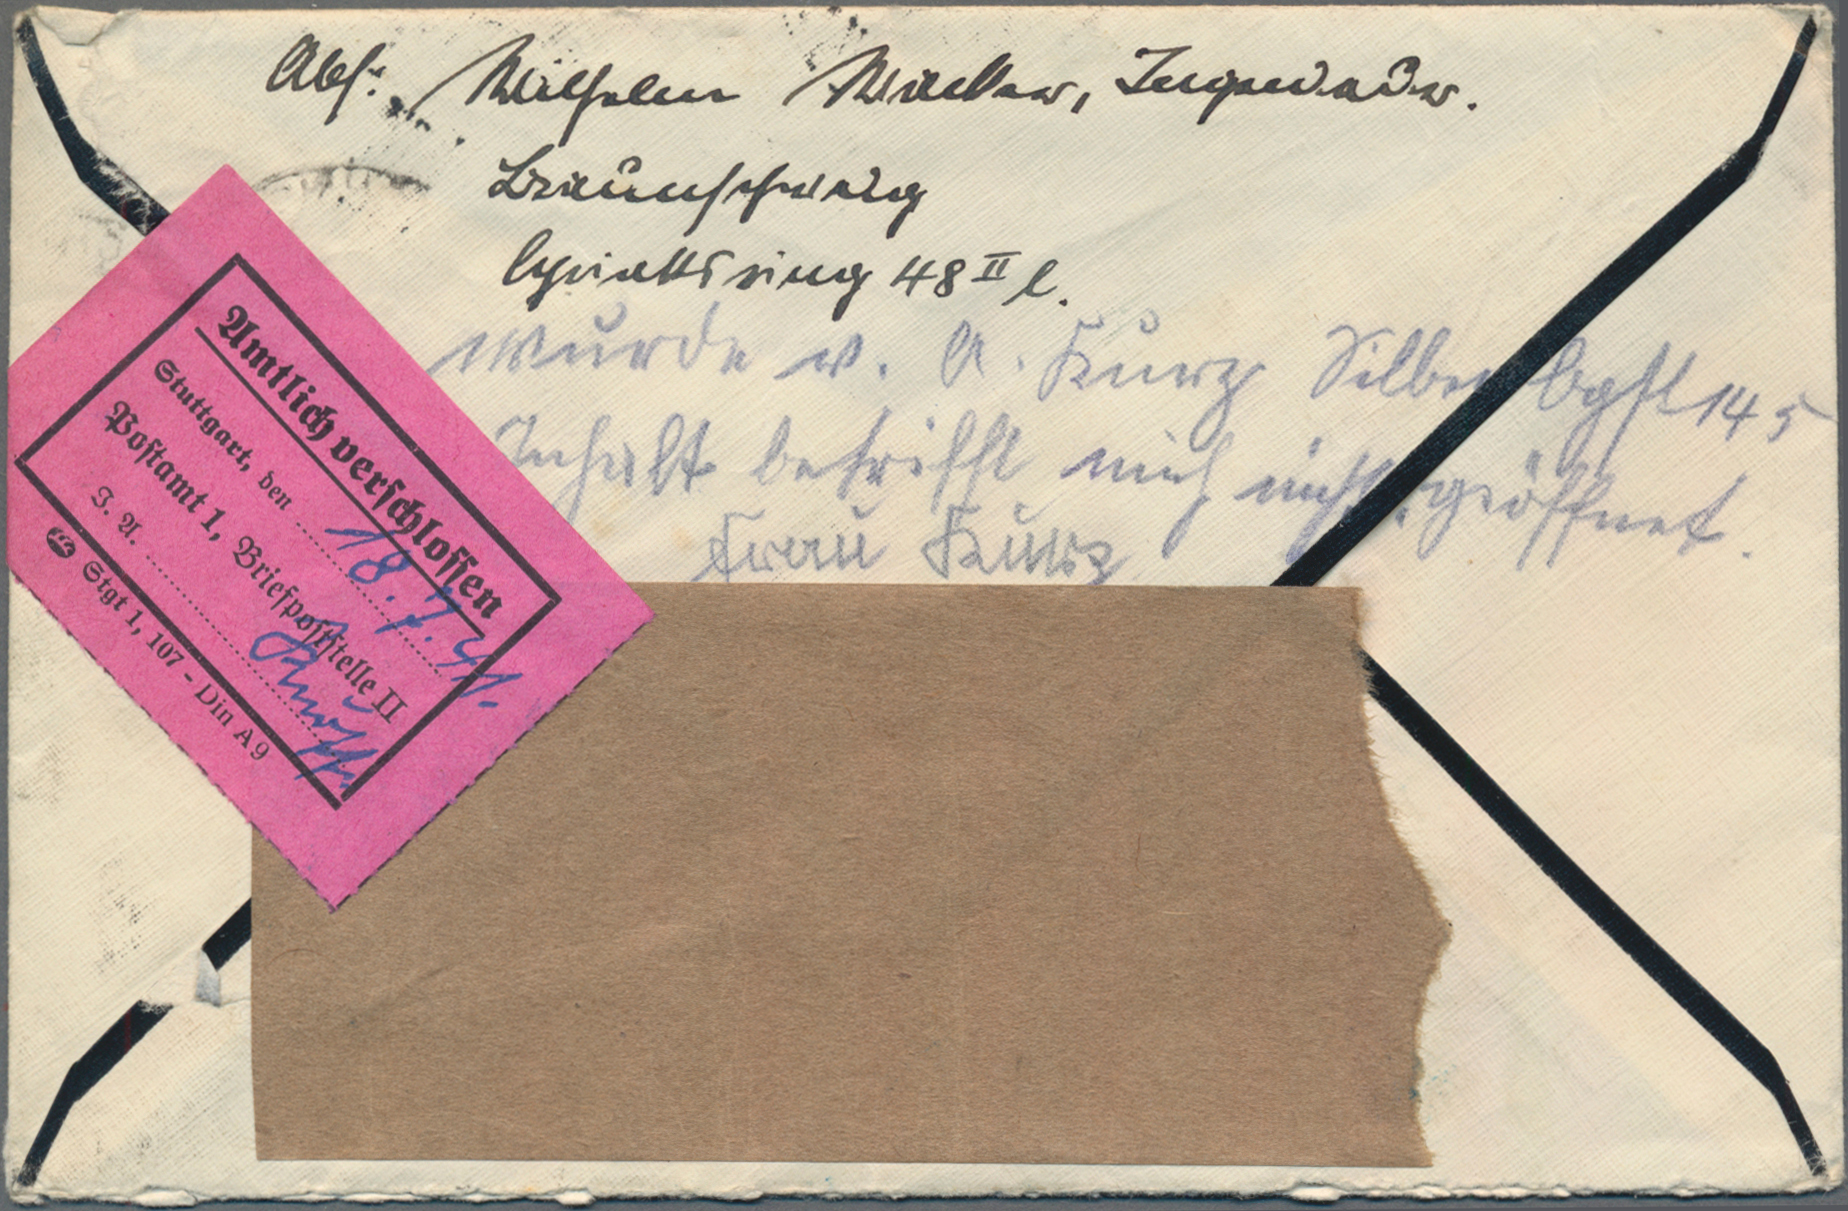 Abs: Wilhelm
Braunschweig
48 II l.
wurde v. A. Kurz Silberbgstr 145
Inhalt betrifft mich nicht, geöffnet.
Frau Kurz
Amtlich verschlossen
Stuttgart, den 18.7.41.
Postamt 1, Briefpoststelle II
I. A.
Stgt 1, 107 - Din A9